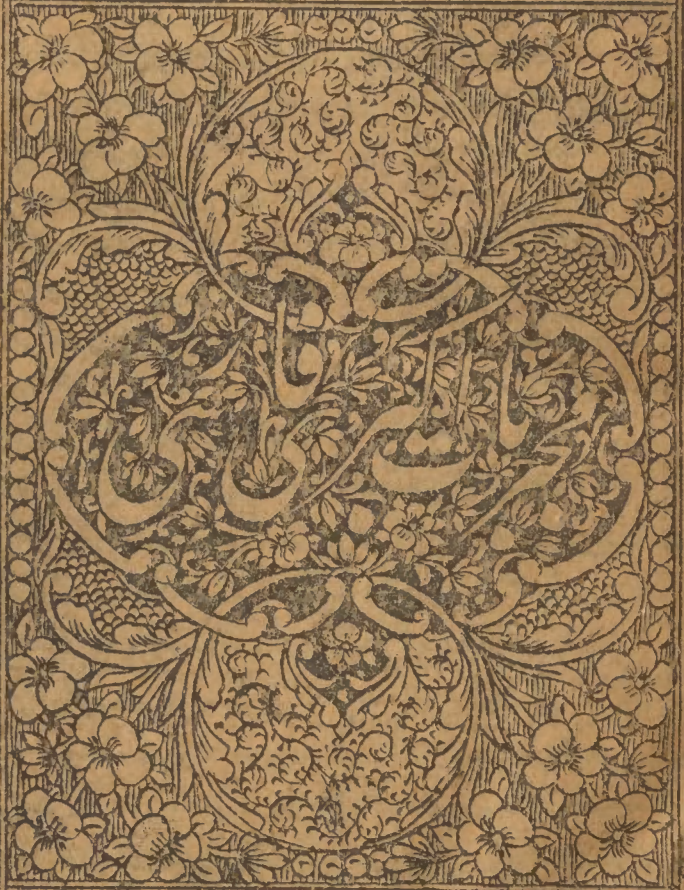 مجربات اکبری فارسی